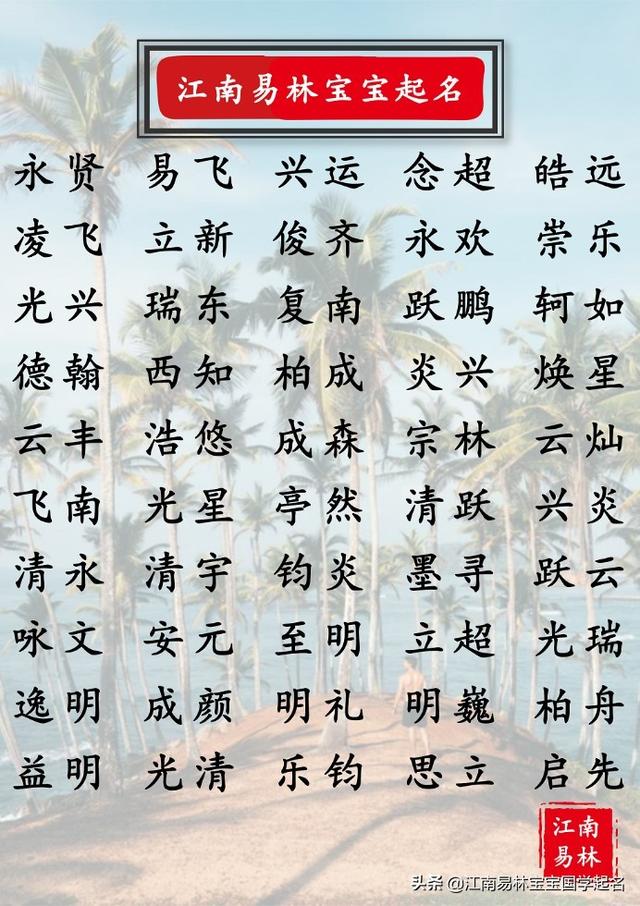 江南易林宝宝起名
永贤 易飞 兴运 念超 皓远
凌飞 立新 俊齐 永欢 崇乐
光兴 瑞东 复南 跃鹏 轲如
德翰 西知 柏成 炎兴 焕星
云丰 浩悠 成森 宗林 云灿
飞南 光星 亭然 清跃 兴炎
清永 清宇 钧炎 墨寻 跃云
咏文 安元 至明 立超 光瑞
逸明 成颜 明礼 明巍 柏舟
益明 光清 乐钧 思立 启先
江南
易林
头条 @江南易林宝宝国学起名